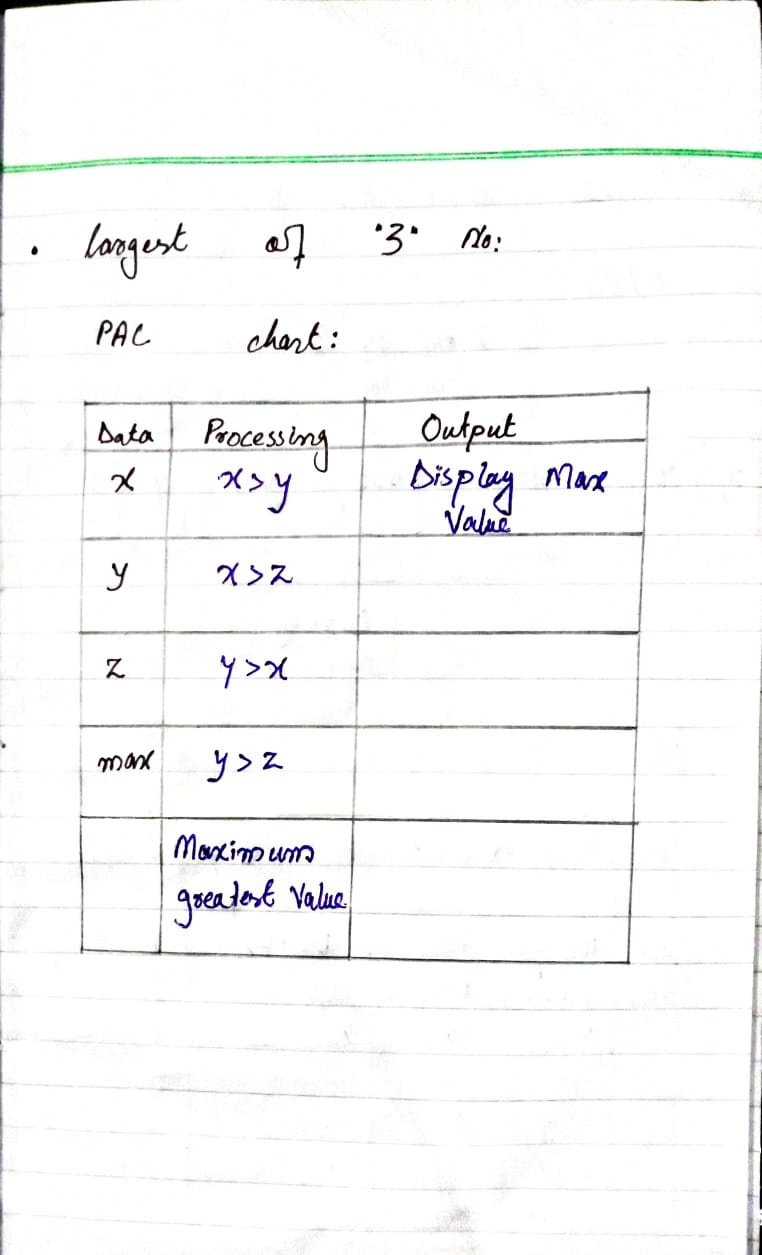 . largest of "3" No:
PAC chart:
Data Processing Output
x x>y Display Max
Value
y x>z
z y>x
max y>z
Maximum
greatest Value